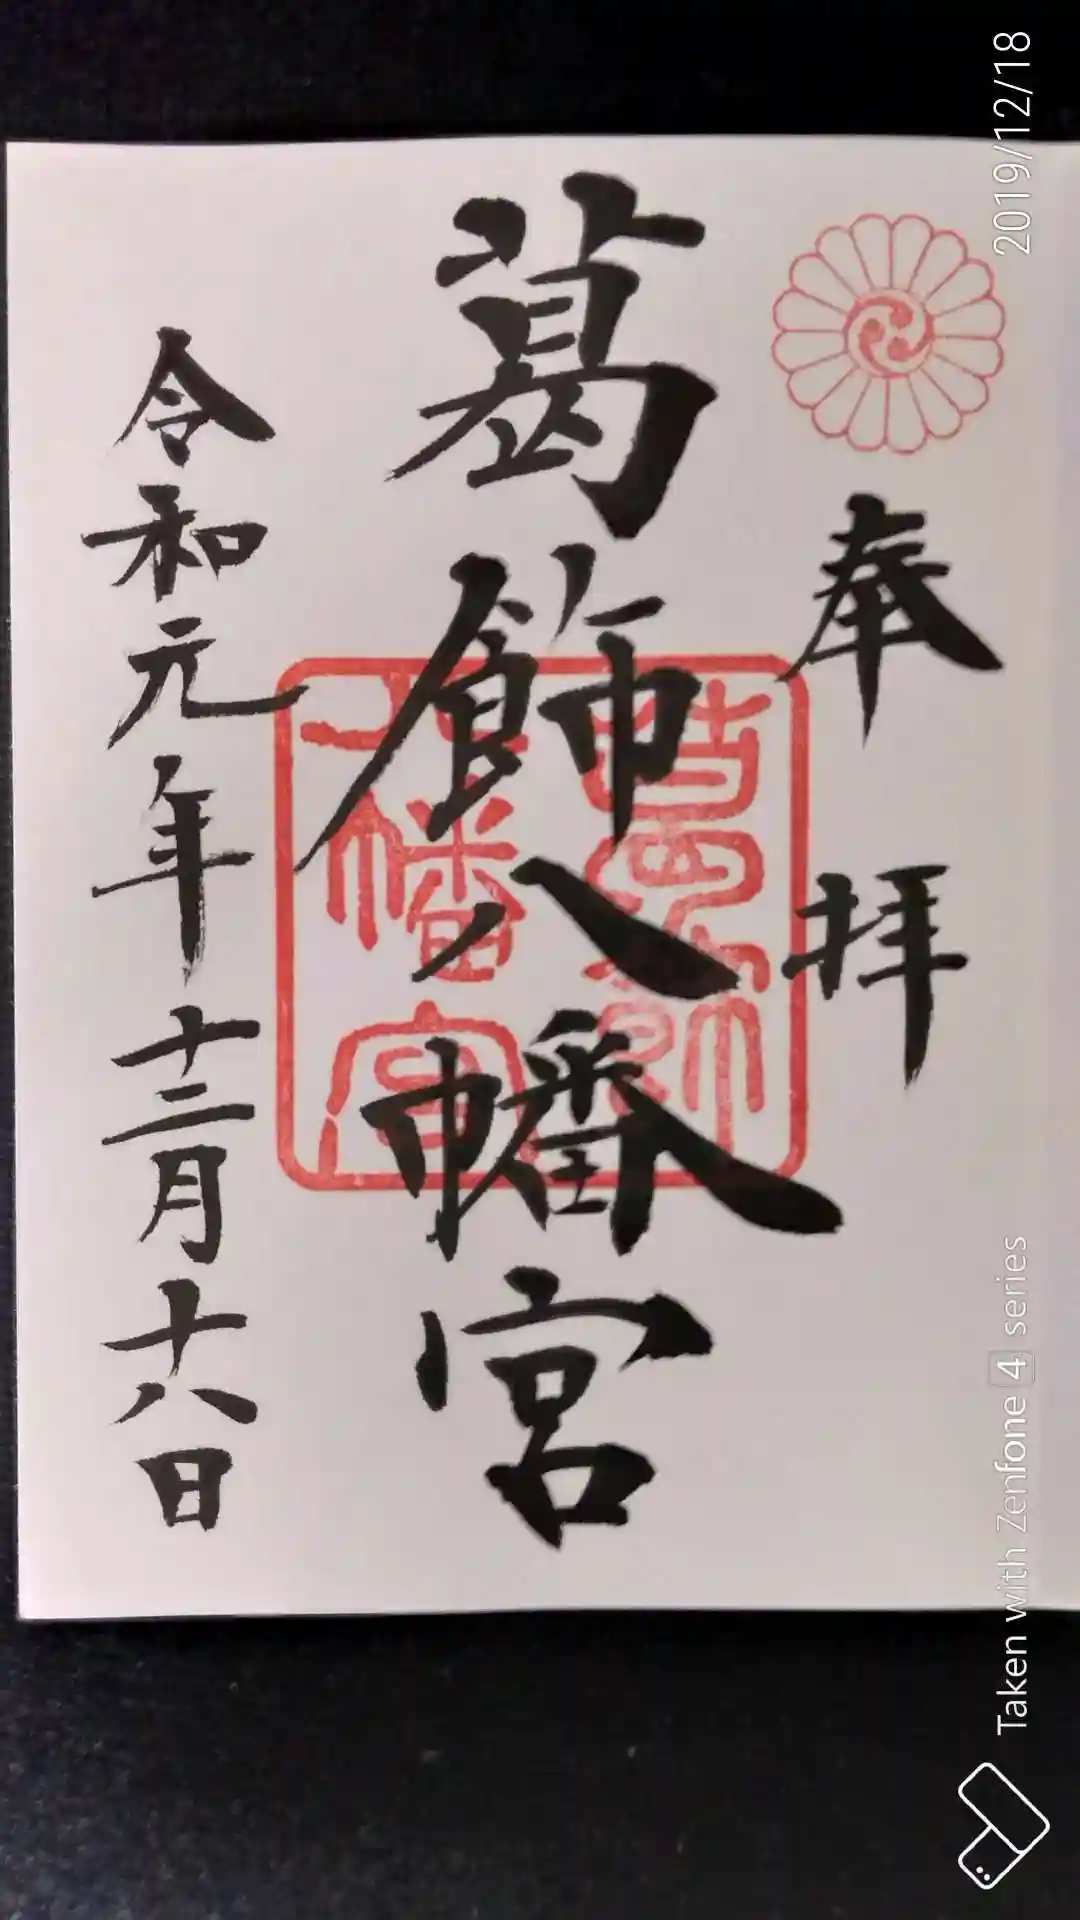 奉拝
葛飾八幡宮
令和元年十二月十八日
葛飾
八幡宮
2019/12/18
Taken with Zenfone 4 series